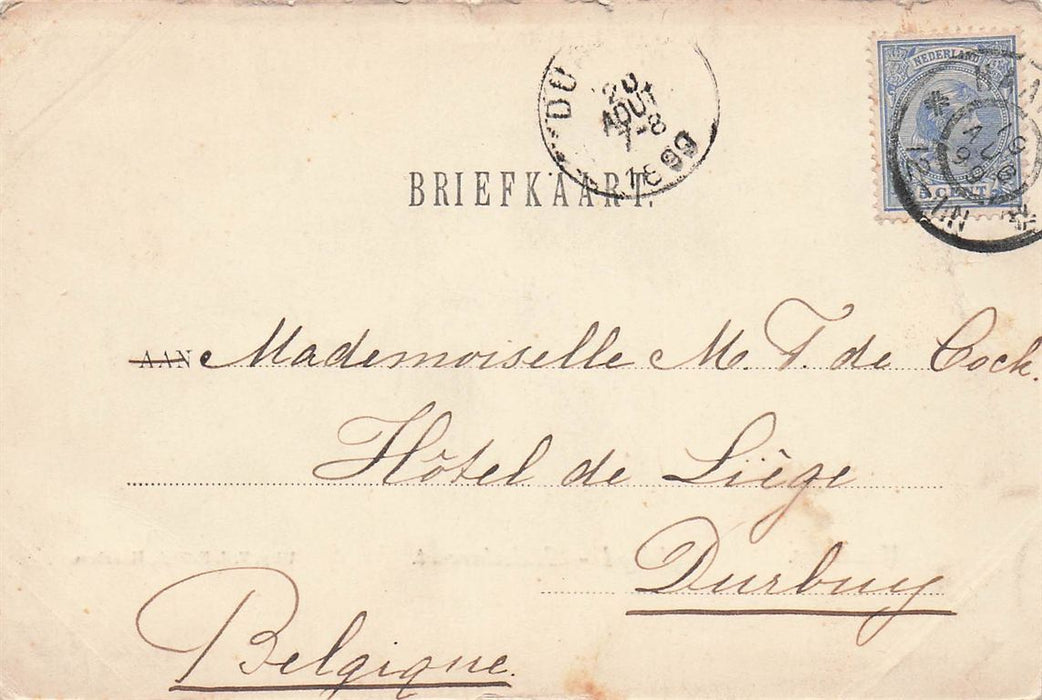 NEDERLAND
5 CENT
19 AUG 99
12-1N
DU
20
AOUT
7-8
1899
BRIEFKAART.
AAN Mademoiselle M. T. de Cock.
Hôtel de Liège
Durbuy
Belgique.